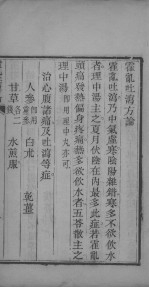 霍亂吐瀉方論
霍亂吐瀉乃中氣虛寒陰陽雜錯寒多不欲飲水
者理中湯主之夏月伏陰在內最多此症若霍亂
頭痛發熱偏身疼痛熱多欲飲水者五苓散主之
理中湯 即用理中丸亦可
治心腹諸痛及吐瀉等症
人參 白朮 乾薑
甘草 各二錢 水煎服